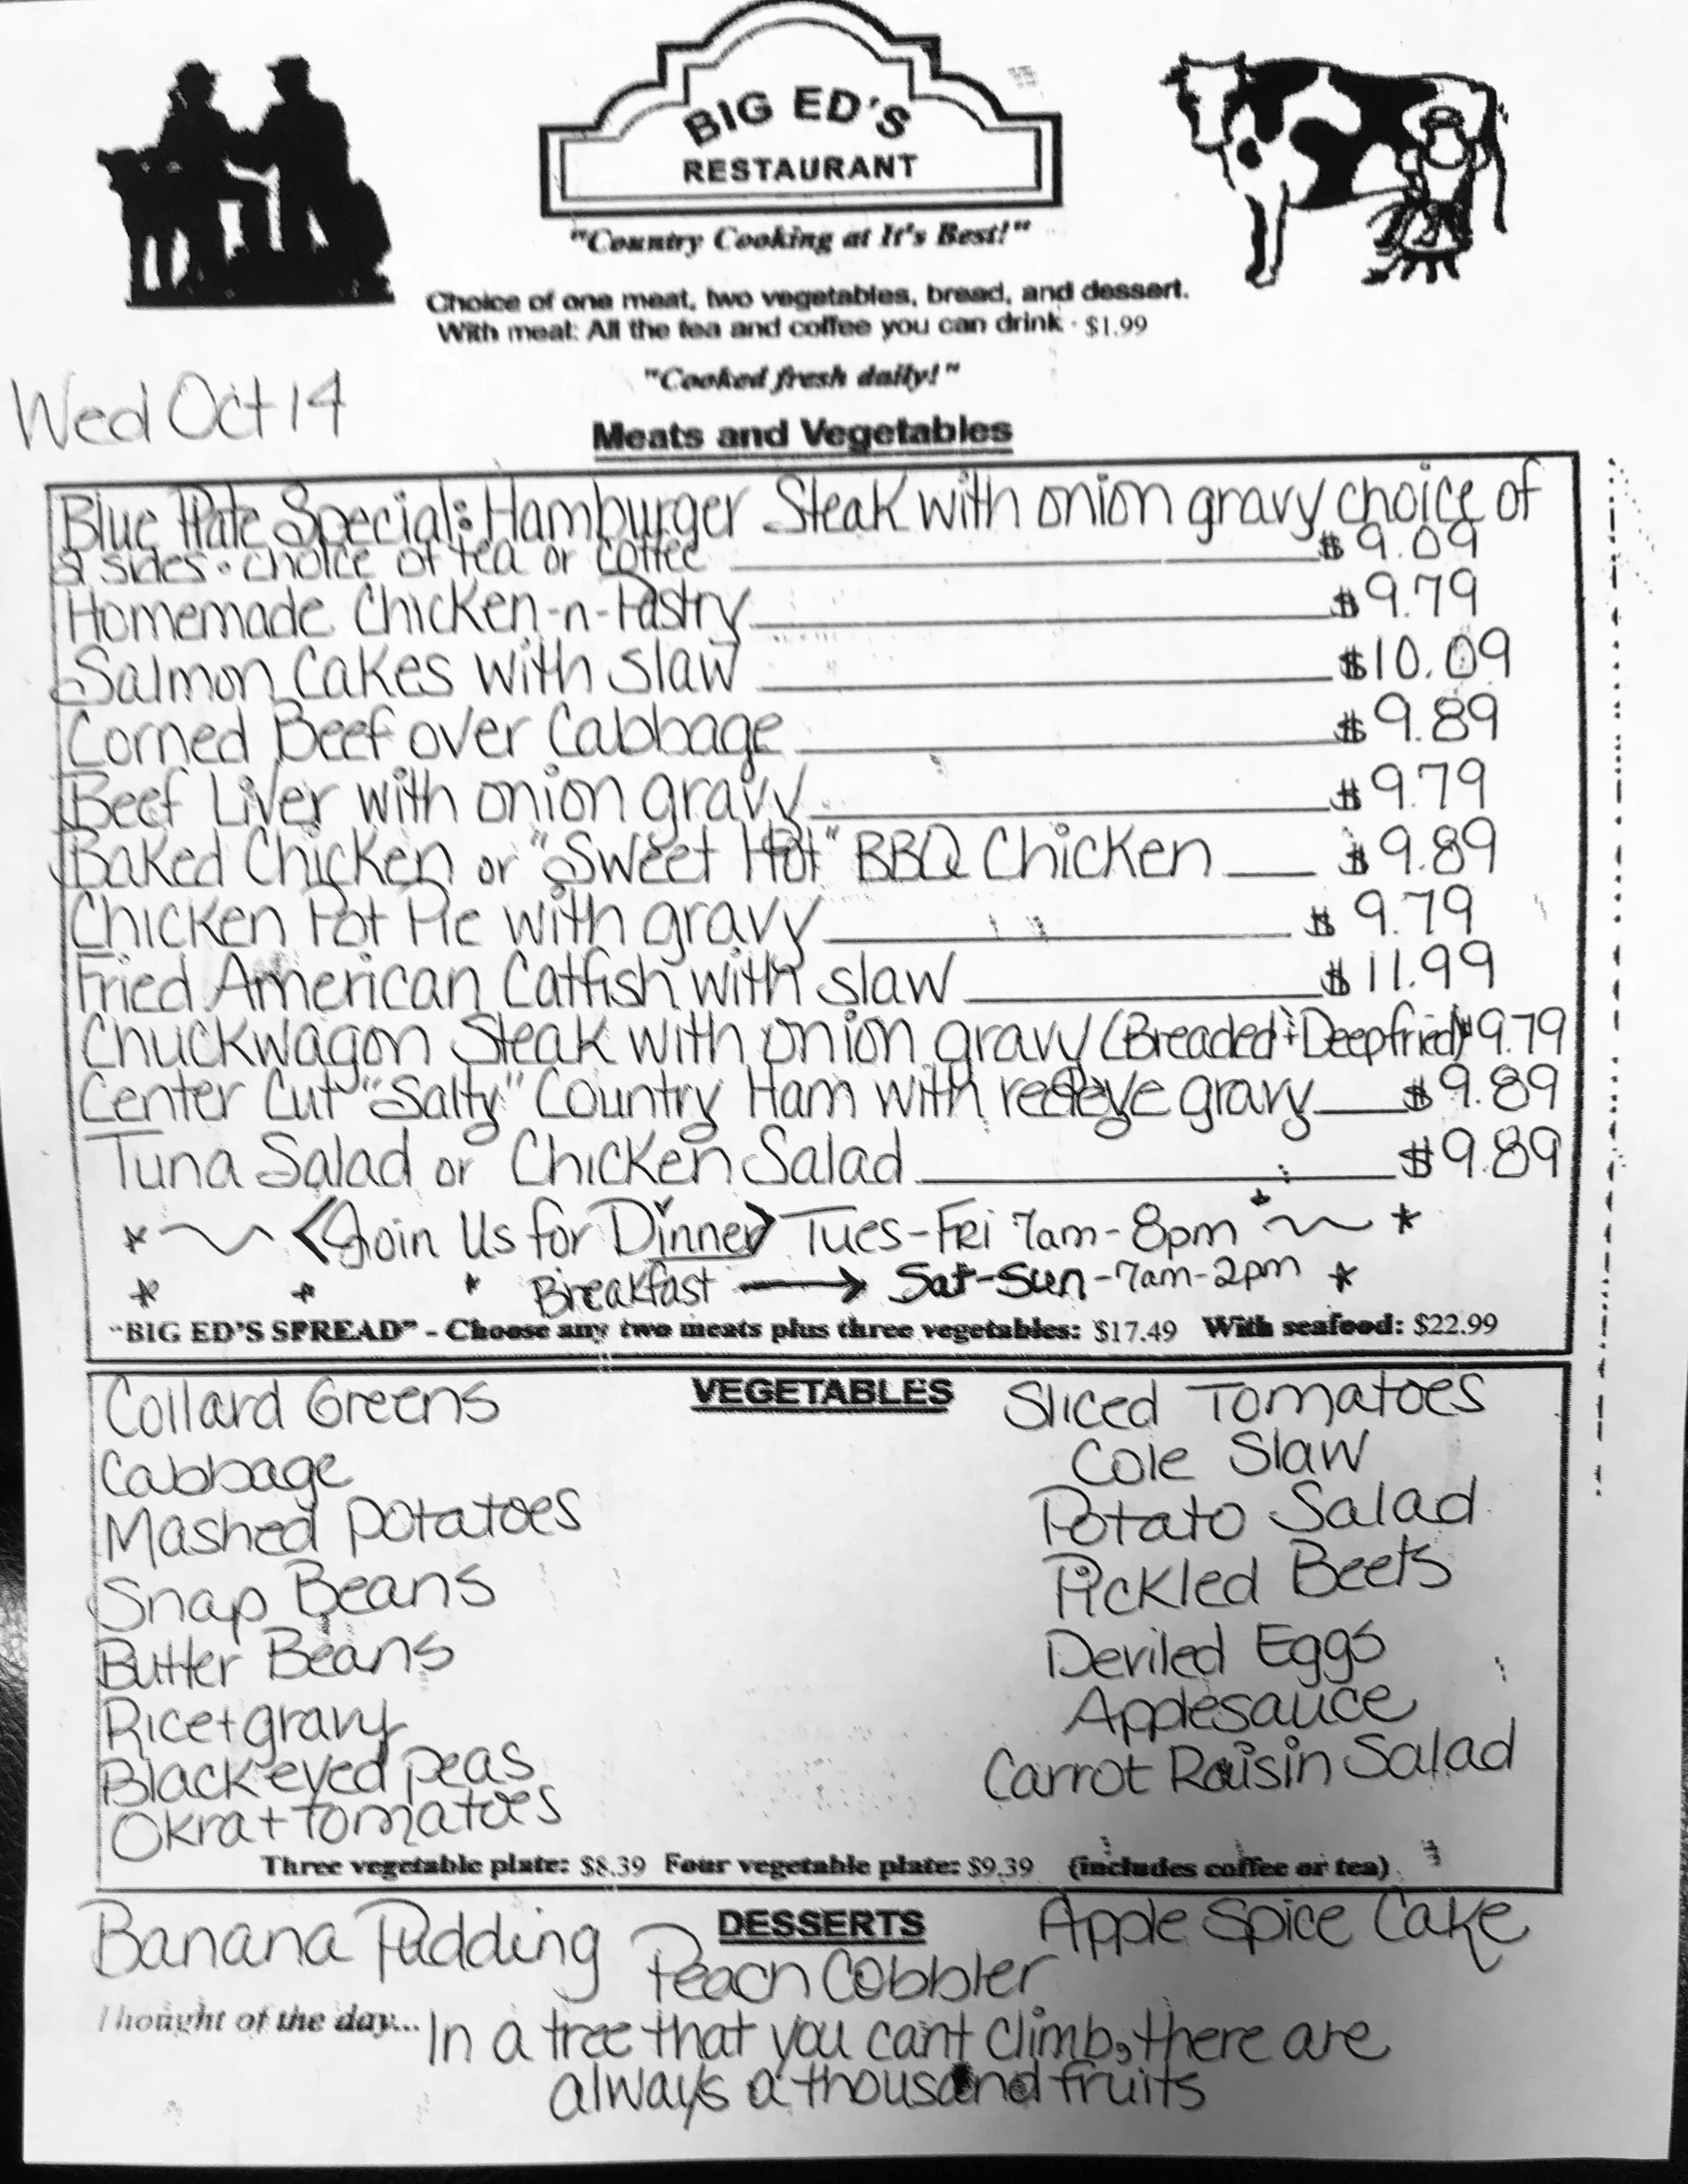 BIG ED'S
RESTAURANT
"Country Cooking at It's Best!"
Choice of one meat, two vegetables, bread, and dessert.
With meat: All the tea and coffee you can drink - $1.99
"Cooked fresh daily!"
Wed Oct 14
Meats and Vegetables
Blue Plate Special: Hamburger Steak with onion gravy choice of
2 sides • choice of tea or coffee $9.09
Homemade Chicken-n-Pastry $9.79
Salmon Cakes with slaw $10.09
Corned Beef over Cabbage $9.89
Beef Liver with onion gravy $9.79
Baked Chicken or "Sweet Hot" BBQ Chicken $9.89
Chicken Pot Pie with gravy $9.79
Fried American Catfish with slaw $11.99
Chuckwagon Steak with onion gravy (Breaded + Deepfried) $9.79
Center Cut "Salty" Country Ham with redeye gravy $9.89
Tuna Salad or Chicken Salad $9.89
* ~ <Join Us for Dinner> Tues-Fri 7am-8pm ~ *
* * * Breakfast → Sat-Sun-7am-2pm *
"BIG ED'S SPREAD" - Choose any two meats plus three vegetables: $17.49 With seafood: $22.99
VEGETABLES
Collard Greens
Cabbage
Mashed potatoes
Snap Beans
Butter Beans
Rice + gravy
Blackeyed peas
Okra + tomatoes
Sliced Tomatoes
Cole Slaw
Potato Salad
Pickled Beets
Deviled Eggs
Applesauce
Carrot Raisin Salad
Three vegetable plate: $8.39 Four vegetable plate: $9.39 (includes coffee or tea)
DESSERTS
Banana Pudding
Peach Cobbler
Apple Spice Cake
Thought of the day... In a tree that you can't climb, there are
always a thousand fruits